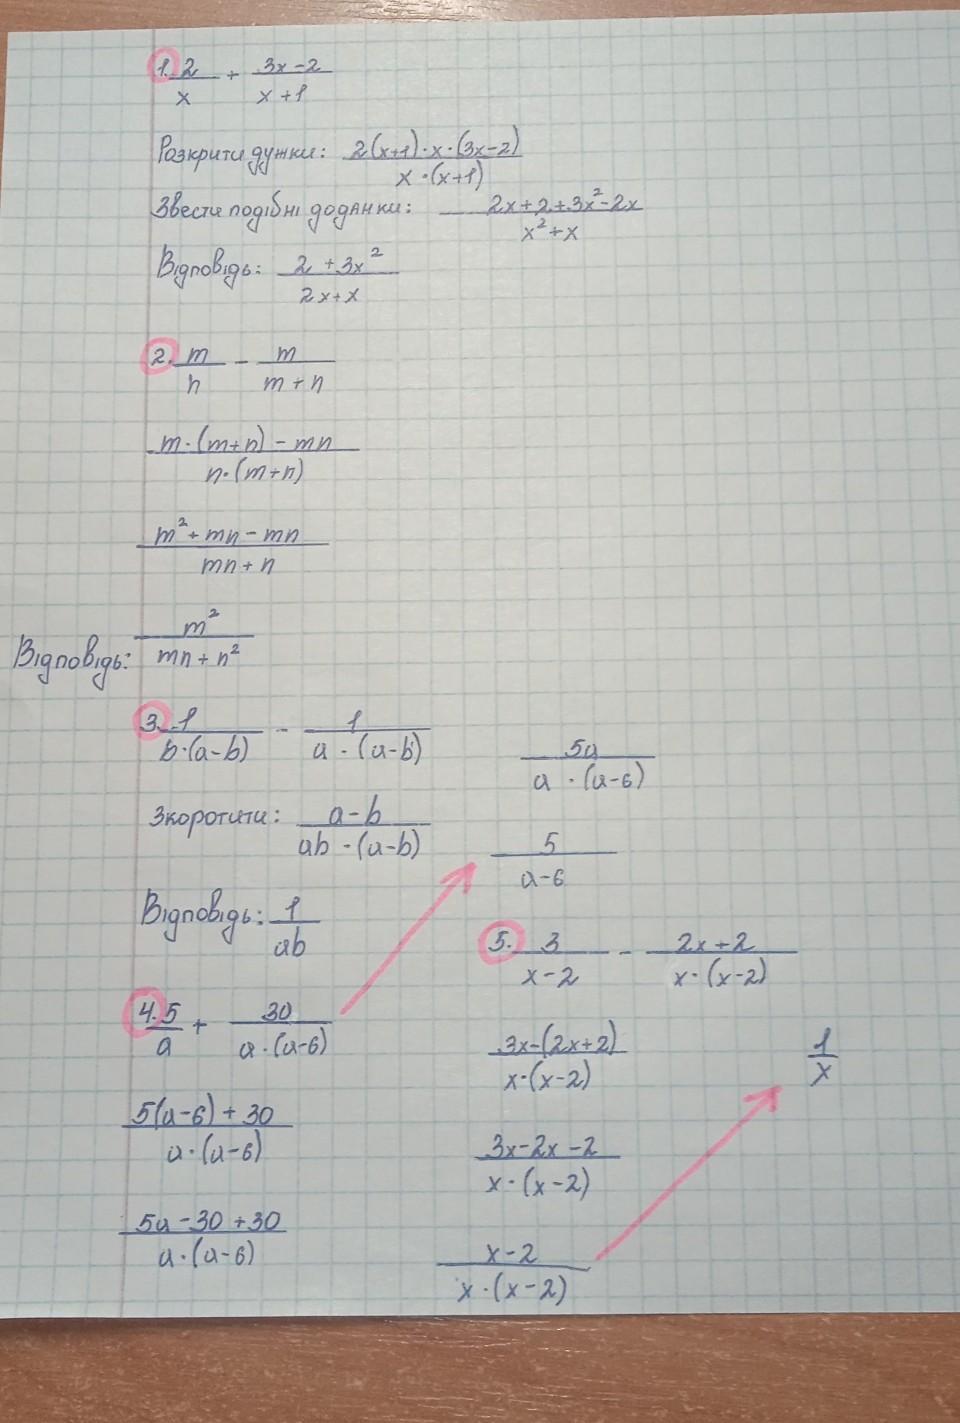 1. 2/x + (3x-2)/(x+1)
Розкрити дужки: (2(x+1)·x·(3x-2))/(x·(x+1))
Звести подібні доданки: (2x+2+3x²-2x)/(x²+x)
Відповідь: (2+3x²)/(2x+x)
2. m/n - m/(m+n)
(m·(m+n)-mn)/(n·(m+n))
(m²+mn-mn)/(mn+n)
Відповідь: m²/(mn+n²)
3. 1/(b·(a-b)) - 1/(a·(a-b))
Зкоротити: (a-b)/(ab·(a-b))
Відповідь: 1/ab
4. 5/a + 30/(a·(a-6))
(5(a-6)+30)/(a·(a-6))
(5a-30+30)/(a·(a-6))
5a/(a·(a-6))
5/(a-6)
5. 3/(x-2) - (2x+2)/(x·(x-2))
(3x-(2x+2))/(x·(x-2))
(3x-2x-2)/(x·(x-2))
(x-2)/(x·(x-2))
1/x